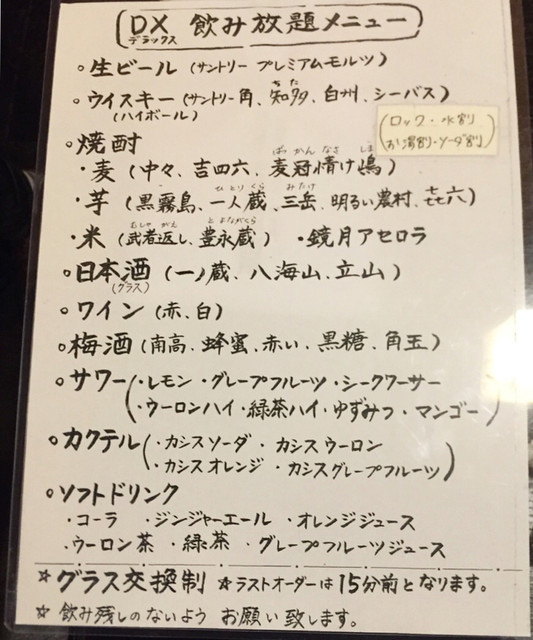 DX 飲み放題メニュー
デラックス
○生ビール(サントリー プレミアムモルツ)
○ウイスキー(サントリー角、知多、白州、シーバス)
ちた
(ハイボール)
(ロック・水割り
お湯割り・ソーダ割)
○焼酎
ばっかんなさ しま
・麦(中々、吉四六、麦冠情け嶋)
ひとりくら みたけ
・芋(黒霧島、一人蔵、三岳、明るい農村、㐂六)
むしゃがえし とよながくら
・米(武者返し、豊永蔵) ・鏡月アセロラ
○日本酒(一ノ蔵、八海山、立山)
(グラス)
○ワイン(赤、白)
○梅酒(南高、蜂蜜、赤い、黒糖、角玉)
○サワー(・レモン・グレープフルーツ・シークワーサー
・ウーロンハイ・緑茶ハイ・ゆずみつ・マンゴー)
○カクテル(・カシスソーダ・カシスウーロン
・カシスオレンジ・カシスグレープフルーツ)
○ソフトドリンク
・コーラ ・ジンジャーエール ・オレンジジュース
・ウーロン茶 ・緑茶 ・グレープフルーツジュース
☆グラス交換制 ☆ラストオーダーは15分前となります。
☆飲み残しのないよう お願い致します。